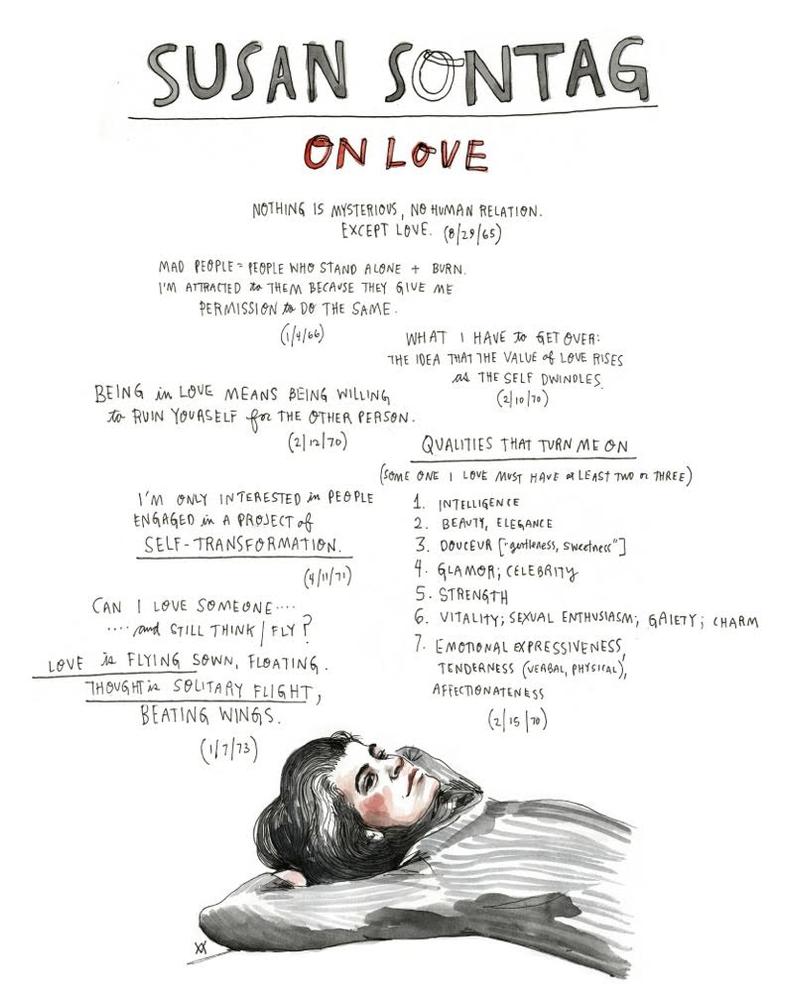 SUSAN SONTAG
ON LOVE
NOTHING IS MYSTERIOUS, NO HUMAN RELATION.
EXCEPT LOVE. (8/29/65)
MAD PEOPLE = PEOPLE WHO STAND ALONE + BURN.
I'M ATTRACTED to THEM BECAUSE THEY GIVE ME
PERMISSION to DO THE SAME.
(1/4/66)
WHAT I HAVE to GET OVER:
THE IDEA THAT THE VALUE of LOVE RISES
as THE SELF DWINDLES.
(2/10/70)
BEING in LOVE MEANS BEING WILLING
to RUIN YOURSELF for THE OTHER PERSON.
(2/12/70)
QUALITIES THAT TURN ME ON
(SOME ONE I LOVE MUST HAVE at LEAST TWO or THREE)
1. INTELLIGENCE
2. BEAUTY, ELEGANCE
3. DOUCEUR ["gentleness, sweetness"]
4. GLAMOR; CELEBRITY
5. STRENGTH
6. VITALITY; SEXUAL ENTHUSIASM; GAIETY; CHARM
7. EMOTIONAL EXPRESSIVENESS,
TENDERNESS (VERBAL, PHYSICAL),
AFFECTIONATENESS
(2/15/70)
I'M ONLY INTERESTED in PEOPLE
ENGAGED in A PROJECT of
SELF-TRANSFORMATION.
(4/11/71)
CAN I LOVE SOMEONE....
.... and STILL THINK/FLY?
LOVE is FLYING SOWN, FLOATING.
THOUGHT is SOLITARY FLIGHT,
BEATING WINGS.
(1/7/73)